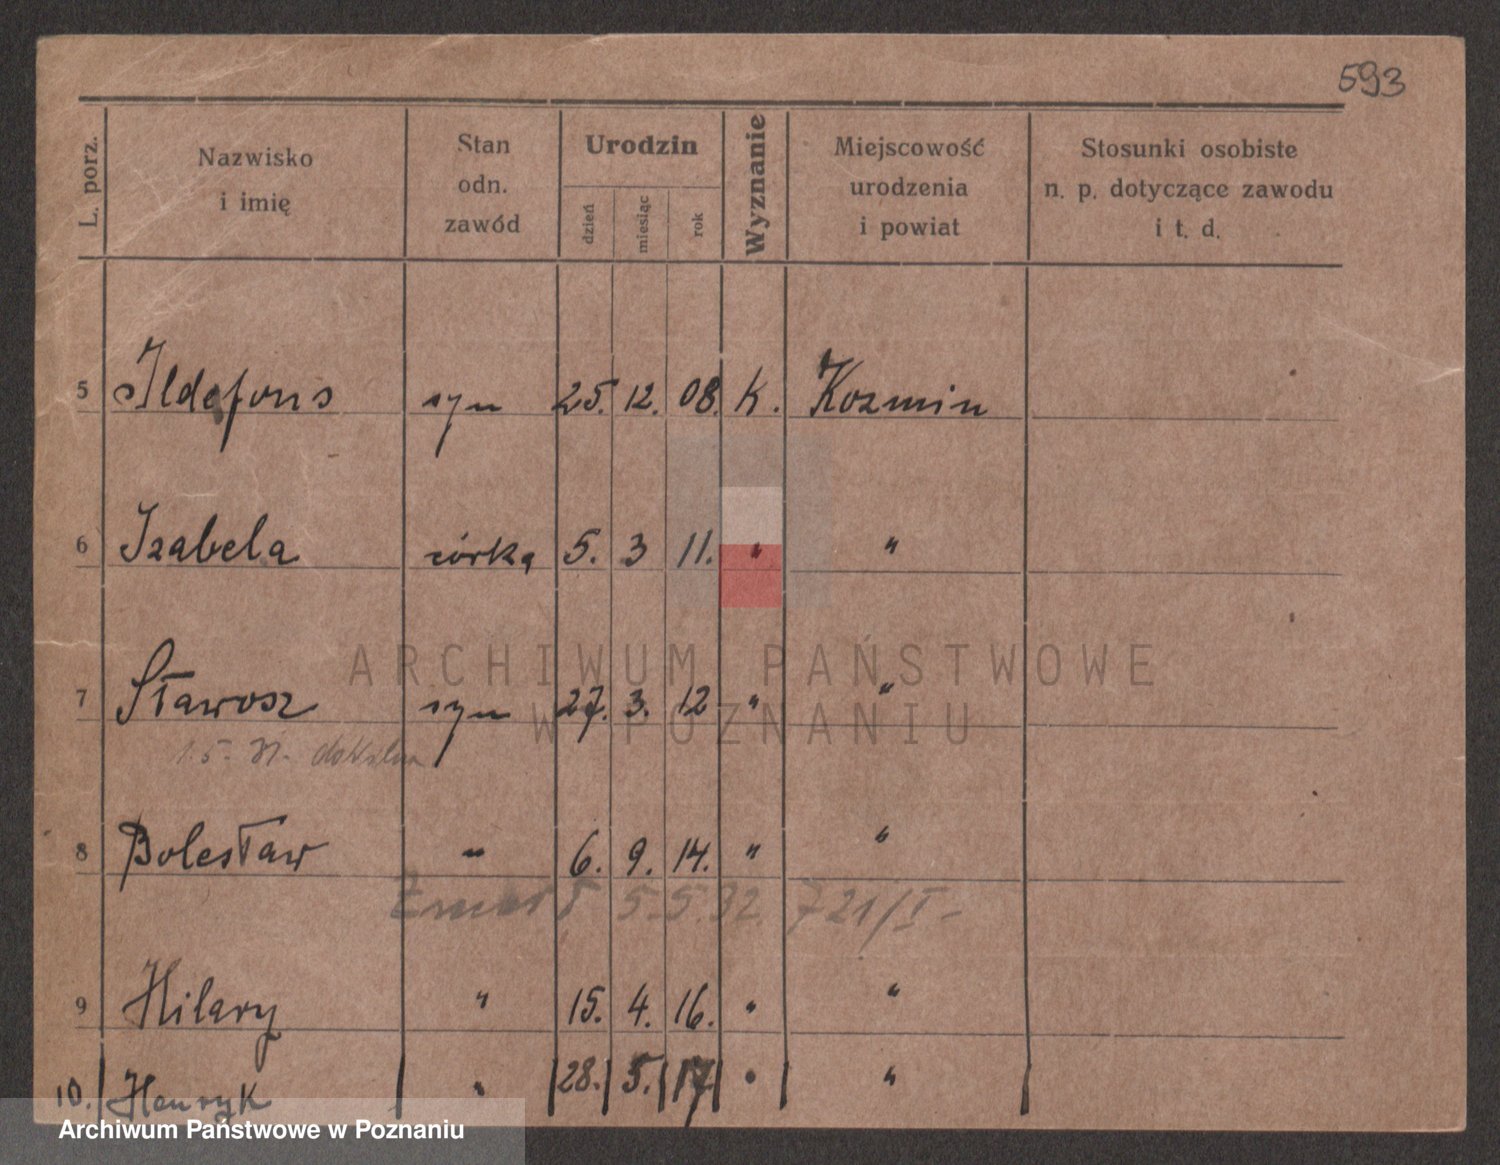 593
L. porz. Nazwisko i imię Stan odn. zawód Urodzin dzień miesiąc rok Wyznanie Miejscowość urodzenia i powiat Stosunki osobiste n. p. dotyczące zawodu i t. d.
5 Ildefons syn 25. 12. 08. K. Kozmin
6 Izabela córka 5. 3 11. " "
ARCHIWUM PAŃSTWOWE
7 Sławosz syn 27. 3. 12 " "
W POZNANIU
1.5. 31.
8 Bolesław " 6. 9. 14. " "
Zmarł 5.5.32. 721/I-
9 Hilary " 15. 4. 16. " "
10. Henryk " 28. 5. 17 " "
Archiwum Państwowe w Poznaniu